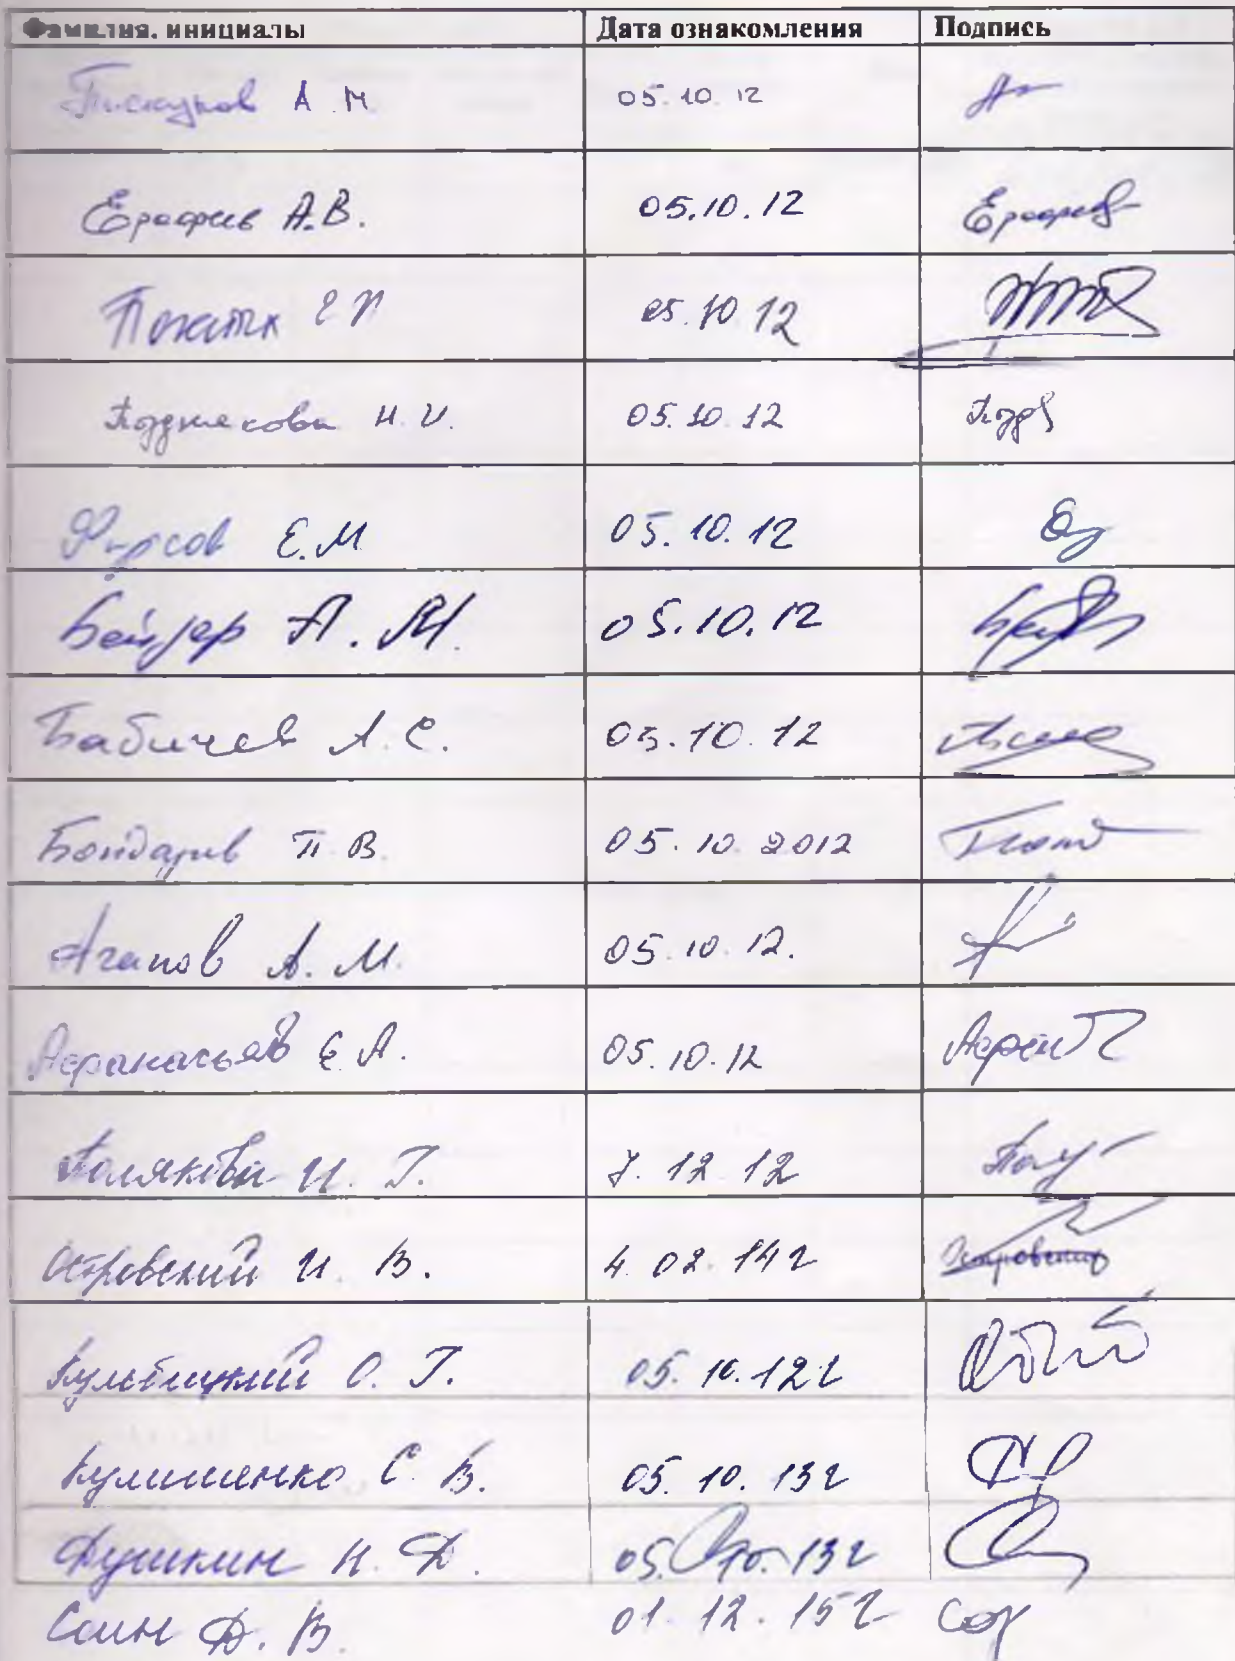 Фамилия, инициалы Дата ознакомления Подпись
Пискунов А М 05.10.12
Ерофеев А.В. 05.10.12 Ерофеев
05.10 12
Позднякова Н. И. 05.10.12 Позд
Фирсов Е.М 05.10.12
Бейзер А. М. 05.10.12
Бабичев А. С. 05.10.12
Бондарев П В. 05.10 2012
Агапов А. М. 05.10.12.
Афанасьев Е.А. 05.10.12
Полякова И. Г. 7. 12 12
Островский И. В. 4. 02. 14г Островский
Кульбицкий О. Г. 05. 10. 12г
Кулишенко С. В. 05. 10. 13г
Душкин Н. Д. 05. 10. 13г
Соин Д. В. 01. 12. 15г